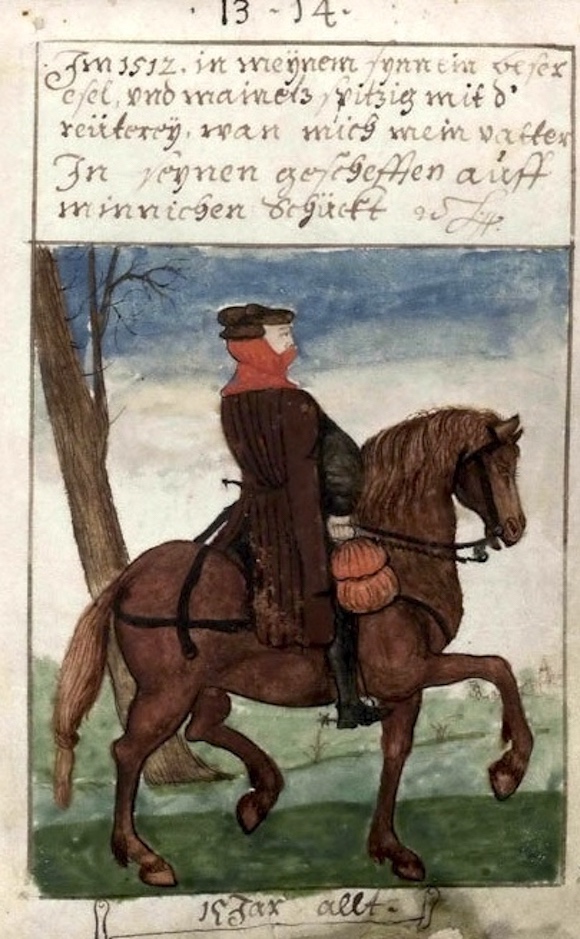 13 · 14 ·
Im 1512. in meynem synn ein beser
esel, vnd mainetz spitzig mit d'
reüterey, wan mich mein vatter
In seynen gescheften auff
minnichen Schückt
15 Jar allt ·